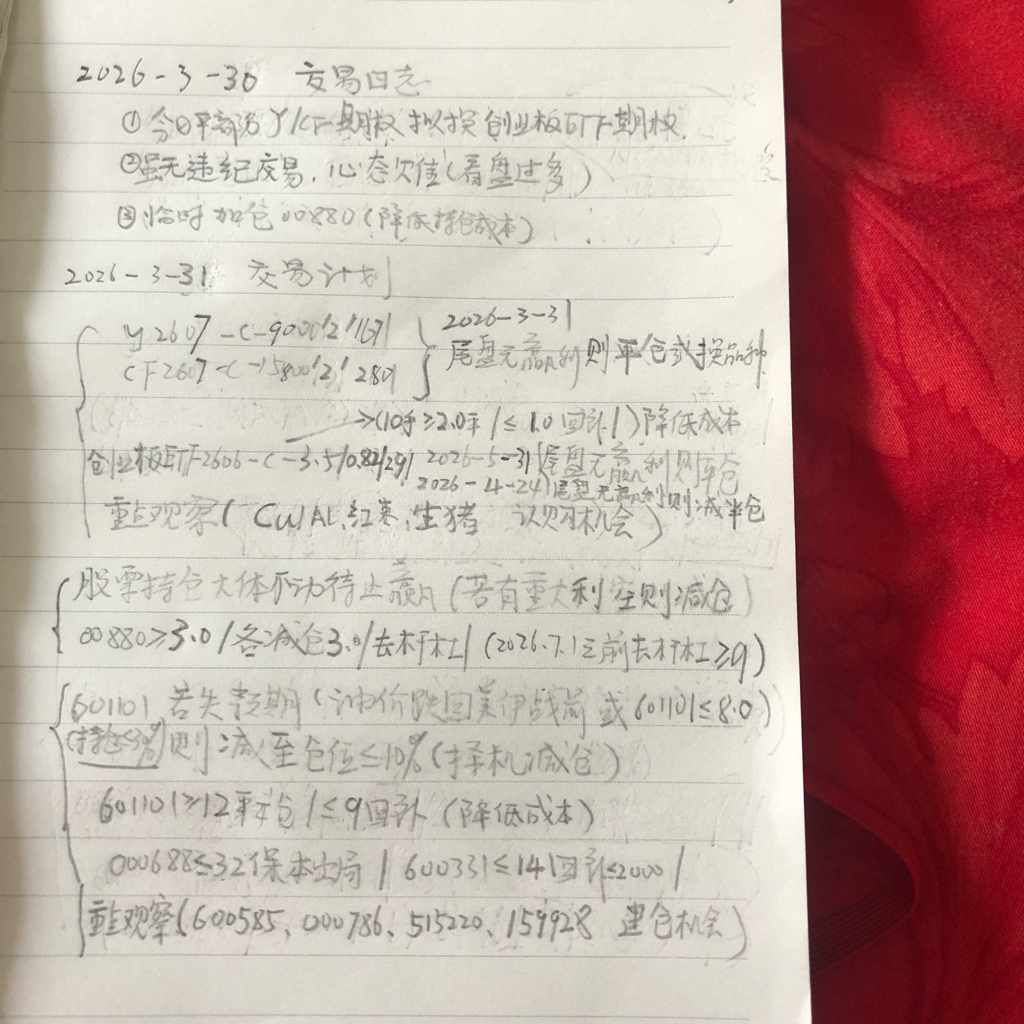 2026-3-30 交易日志
①今日平部分Y/CF期权拟换创业板ETF期权.
②虽无违纪交易,心态欠佳(看盘过多)
③临时加仓00880(降低持仓成本)
2026-3-31 交易计划
y2607-C-9000/2/167/
CF2607-C-15800/2/280/
2026-3-31
尾盘无赢利则平仓或换品种
→(10手≥2.0平/≤1.0回补/)降低成本
创业板ETF2606-C-3.5/0.82/29/ 2026-5-31(尾盘无赢利则平仓
2026-4-24)尾盘无赢利则减半仓
重点观察(Cu/AL,红枣,生猪 认购机会)
股票持仓大体不动待止赢(若有重大利空则减仓)
00880≥3.0/各减仓3.0/去杠杆/(2026.7.1之前去杠杆≥9)
601101若失预期(油价跌回美伊战前或601101≤8.0)
(持仓≤30%)则减至仓位≤10%(择机减仓)
601101≥12平仓/≤9回补(降低成本)
000688≤32保本出局/600331≤14回补≤2000/
重点观察(600585、000786、515220、159928 建仓机会)